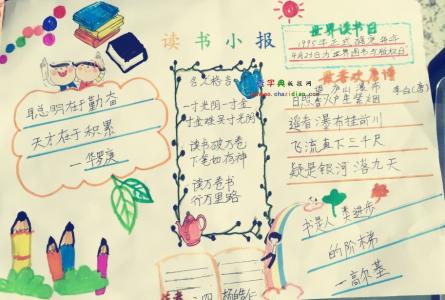 读书小报
聪明在于勤奋
天才在于积累
一华罗庚
名人格言
一寸光阴一寸金
寸金难买寸光阴
读书破万卷
下笔如有神
读万卷书
行万里路
世界读书日
1995年正式确定每年
4月23日为世界图书与版权日
我喜欢唐诗
望庐山瀑布
李白(唐)
日照香炉生紫烟
遥看瀑布挂前川
飞流直下三千尺
疑是银河落九天
书是人类进步
的阶梯
一高尔基
查字典板报网
www.chazidian.com